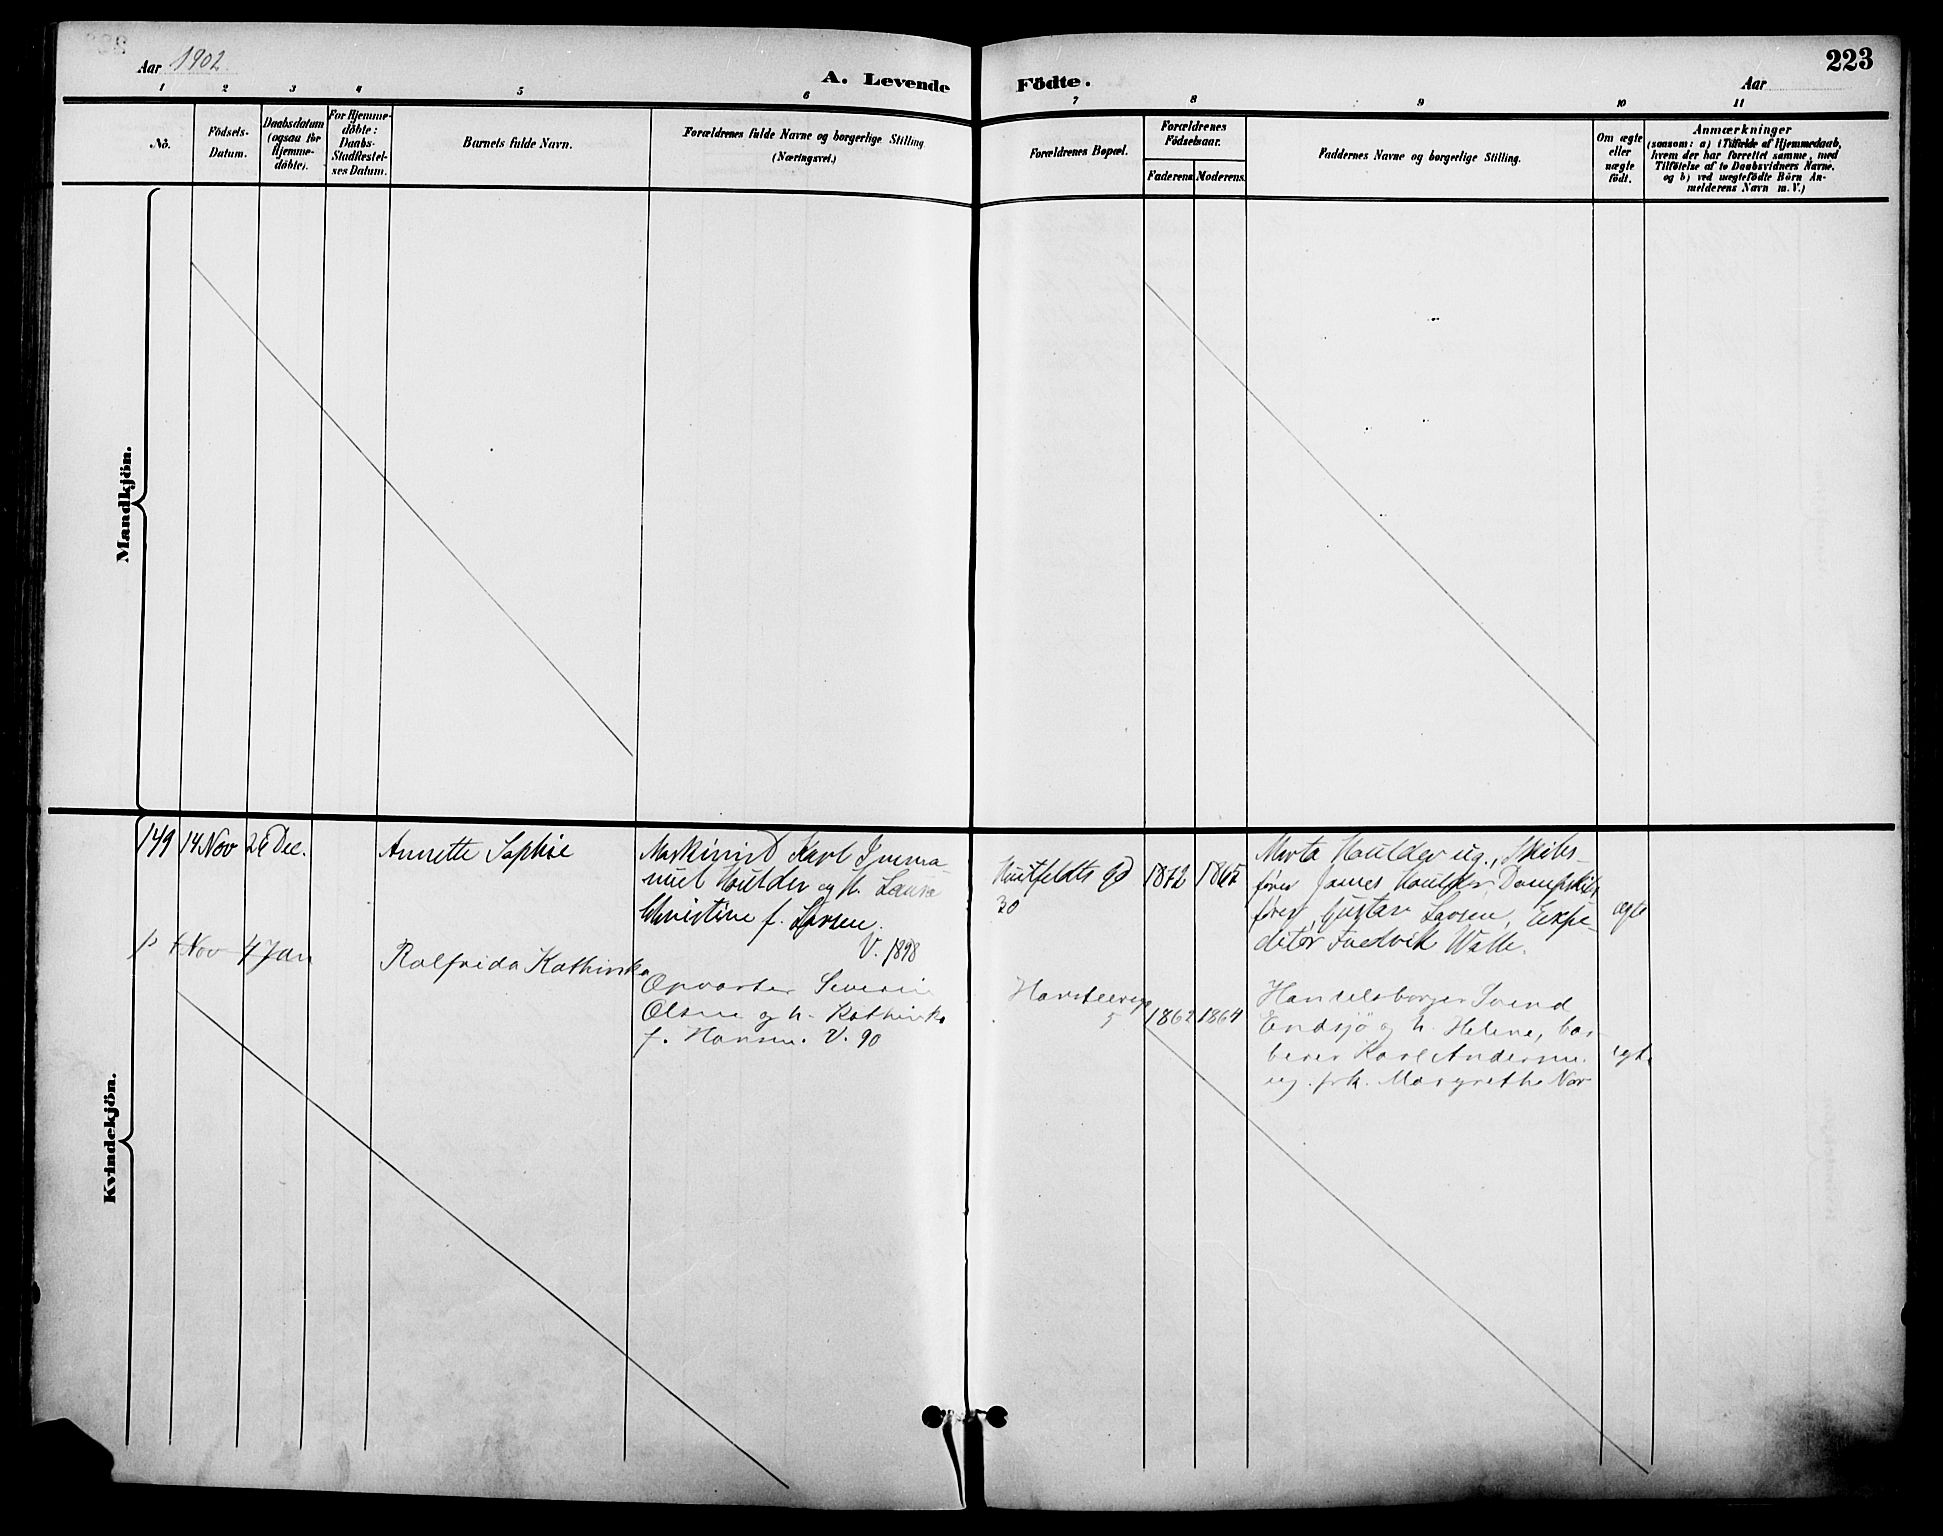 Aar 1902
A. Levende Födte.
Aar
223
1 2 3 4 5 6 7 8 9 10 11
No.
Födsels-
Datum.
Daabsdatum
(ogsaa for
Hjemme-
döbte).
For Hjemme-
döbte:
Daabs-
Stadfæstel-
ses Datum.
Barnets fulde Navn.
Forældrenes fulde Navne og borgerlige Stilling
(Næringsvei.)
Forældrenes Bopæl.
Forældrenes
Födselsaar.
Faderens.
Moderens.
Faddernes Navne og borgerlige Stilling.
Om ægte
eller
uægte
födt.
Anmærkninger
(saasom: a) i Tilfælde af Hjemmedaab,
hvem der har forrettet samme, med
Tilföielse af to Daabsvidners Navne.
og b) ved uægtefödte Börn An-
melderens Navn m. V.)
Mandkjön.
Kvindekjön.
149 14 Nov 26 Dec.
Annette Sophie
Maskinist Karl Imma-
nuel Houlder og h. Laura
Christine f. Larsen.
V. 1898
Huitfeldts Gd
30
1872 1865
Marta Houlder ug., Skibs-
fører James Houlder, Dampskibs
fører Gustav Larsen, Expe-
ditør Fredrik Walle.
ægte
Nov 4 Jan
Ralfrida Kathinka
Opvarter Severin
Olsen og h. Kathinka
f. Hansen. V. 90
5
1862 1864
Handelsborger Svend
Endsjø og h. Helene, bar-
berer Karl Andersen.
ug. frk. Margrethe Nor
ægte